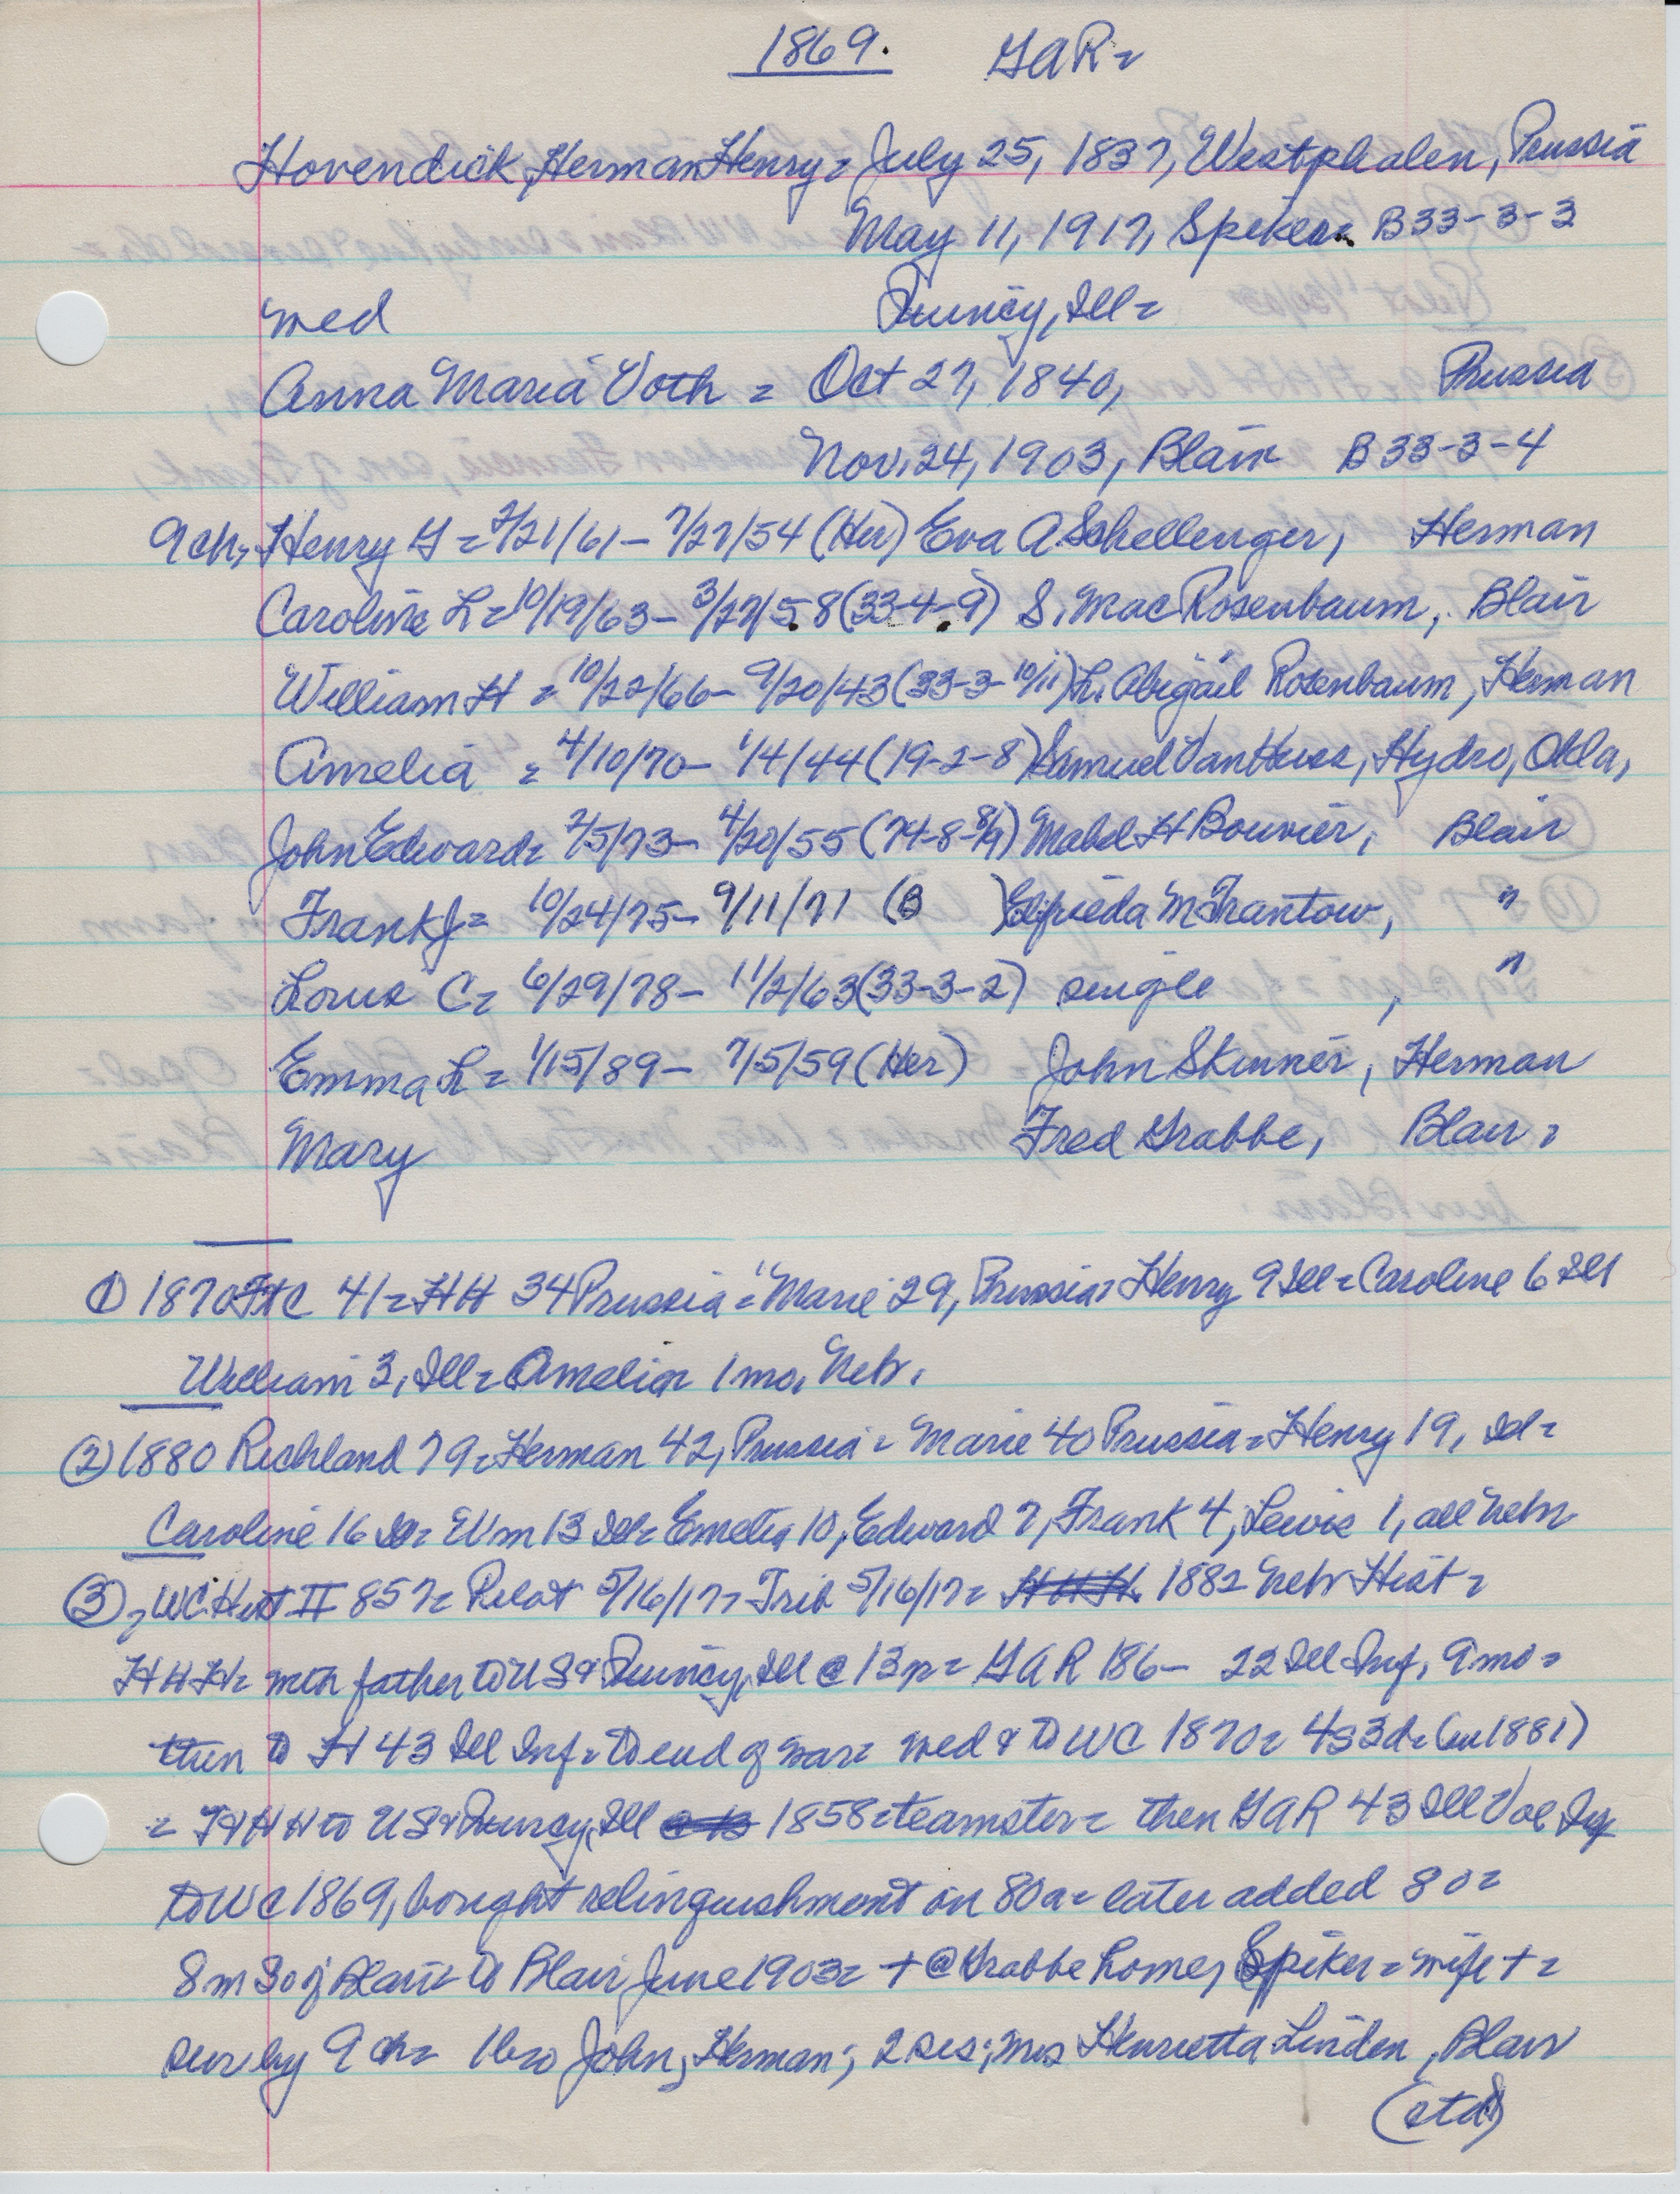 1869. GAR=
Hovendick, Herman Henry = July 25, 1837, Westphalen, Prussia
May 11, 1917, Spiker= B33-3-3
med Quincy, Ill=
Anna Maria Voth = Oct 27, 1840, Prussia
Nov. 24, 1903, Blair B33-3-4
9 ch, Henry G = 2/21/61 - 7/27/54 (Her) Eva A. Schellenger, Herman
Caroline L = 10/19/63 - 3/27/58 (33-4-9) S. Mac Rosenbaum, Blair
William H = 10/22/66 - 9/20/43 (33-3-10/11) L. Abigail Rosenbaum, Herman
Amelia = 4/10/70 - 1/4/44 (19-2-8) Samuel Van Huss, Hydro, Okla,
John Edward = 2/5/73 - 4/20/55 (74-8-8/9) Mabel H Bouvier, Blair
Frank J = 10/24/75 - 9/11/71 (B ) Elfrieda M Frantow, "
Louis C = 6/29/78 - 11/2/63 (33-3-2) single , "
Emma L = 1/15/89 - 7/5/59 (Her) John Skinner, Herman
Mary Fred Grabbe, Blair =
① 1870 FtC 41 = HH 34 Prussia = "Marie 29, Prussia = Henry 9 Ill = Caroline 6 Ill
William 3, Ill = Amelia 1 mo, Nebr.
② 1880 Richland 79 = Herman 42, Prussia = Marie 40 Prussia = Henry 19, Ill =
Caroline 16 Ill = Wm 13 Ill = Emelia 10, Edward 7, Frank 4, Lewis 1, all Nebr
③ = WC Hist II 857 = Pilot 5/16/17 = Trib 5/16/17 = HHH. 1882 Nebr Hist =
HHH = with father to US & Quincy, Ill @ 13 = GAR 186- 22 Ill Inf, 9 mo =
then to H 43 Ill Inf = to end of war = med & to WC 1870 = 4s 3d = (in 1881)
= HH to US & Quincy, Ill @ 13 1858 = teamster = then GAR 43 Ill Vol Inf
to WC 1869, bought relinquishment on 80a = later added 80 =
8 m So of Blair = to Blair June 1903 = + @ Grabbe home, Spiker = wife + =
surv by 9 ch = 1 bro John, Herman; 2 sis; Mrs Henrietta Linden, Blair
(ctd)